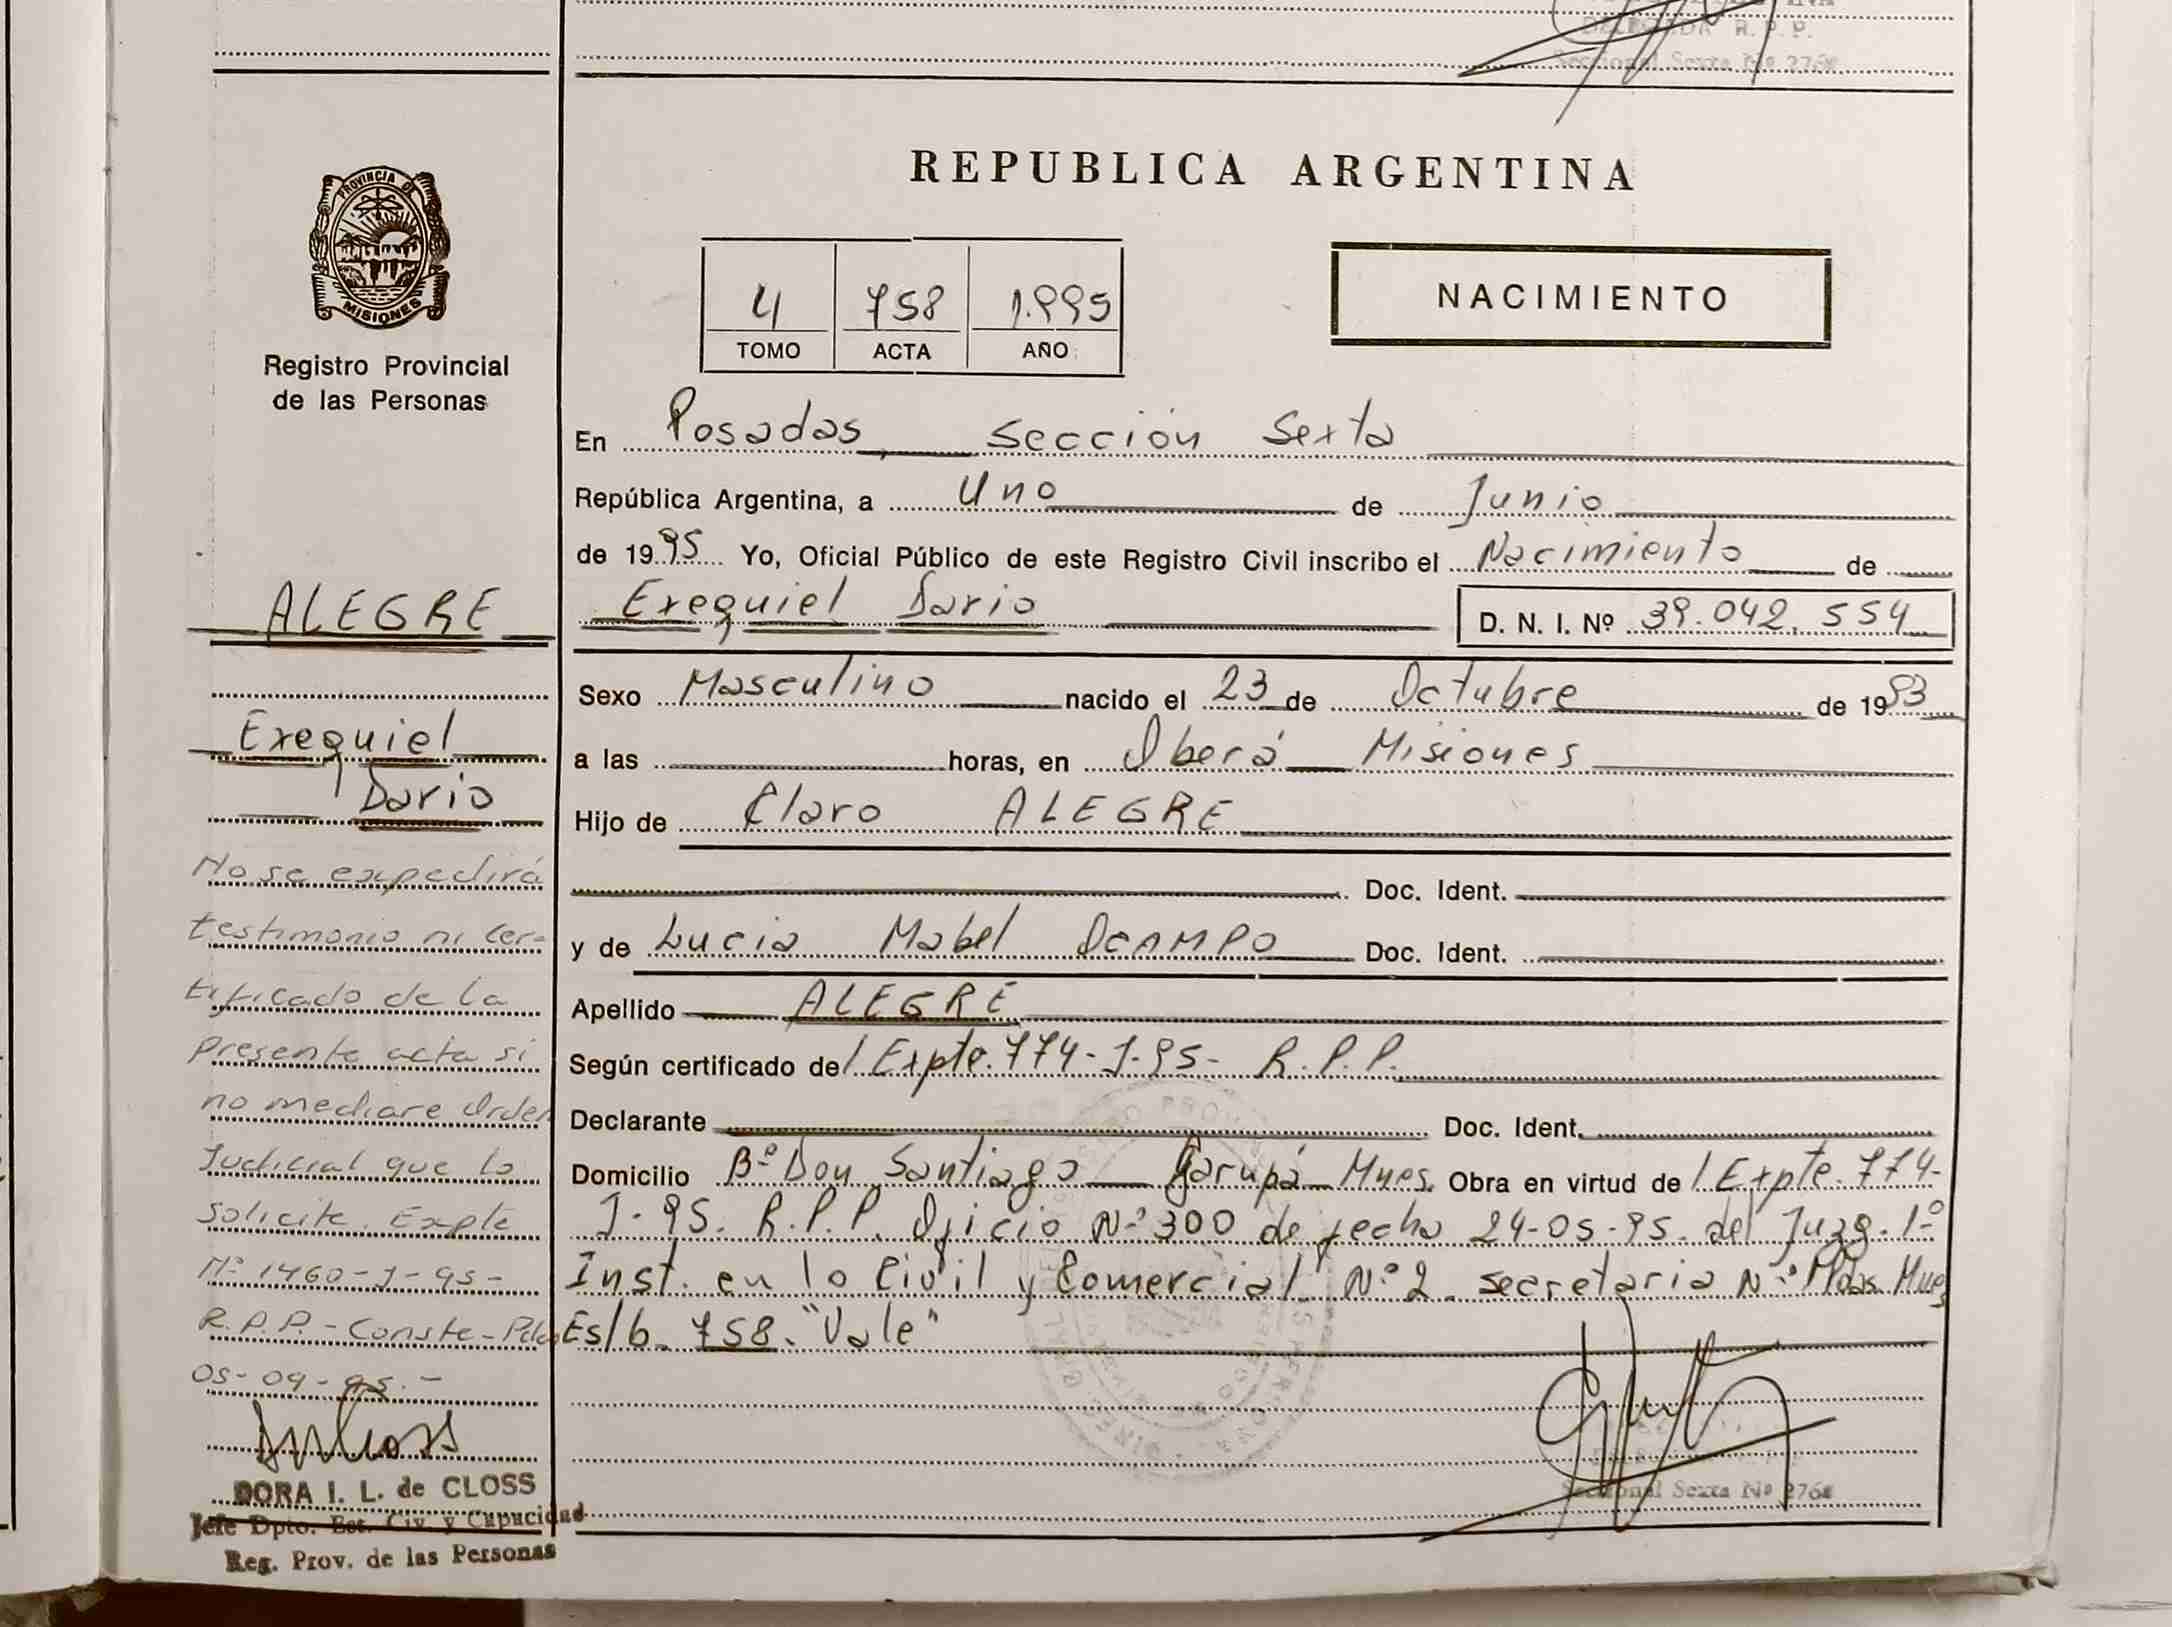 DELEGADA R. P. P.
Seccional Sexta Nº 2768
PROVINCIA DE
MISIONES
Registro Provincial
de las Personas
REPUBLICA ARGENTINA
4 758 1.995
TOMO ACTA AÑO
NACIMIENTO
En Posadas, sección Sexta
República Argentina, a Uno de Junio
de 1995 Yo, Oficial Público de este Registro Civil inscribo el Nacimiento de
Exequiel Dario D. N. I. Nº 39.042.554
Sexo Masculino nacido el 23 de Octubre de 1993
a las horas, en Oberá Misiones
Hijo de Claro ALEGRE
Doc. Ident.
y de Lucia Mabel OCAMPO Doc. Ident.
Apellido ALEGRE
Según certificado de/ Expte. 774-J-95- R.P.P.
Declarante Doc. Ident.
Domicilio Bº Don Santiago Garupá Mnes. Obra en virtud de/ Expte. 774-
J-95. R.P.P. Oficio Nº 300 de fecha 24-05-95. del Juzg. 1º
Inst. en lo Civil y Comercial Nº 2. secretaria Nº Pdas. Mnes
Es/b. 758. "Vale"
Seccional Sexta Nº 2768
ALEGRE
Exequiel
Dario
No se expedirá
testimonio ni cer-
tificado de la
Presente acta si
no mediare Orden
Judicial que lo
Solicite. Expte
Nº 1460-J-95-
R.P.P.- Conste- Pdas
05-09-95.-
DORA I. L. de CLOSS
Jefe Dpto. Est. Civ. y Capacidad
Reg. Prov. de las Personas